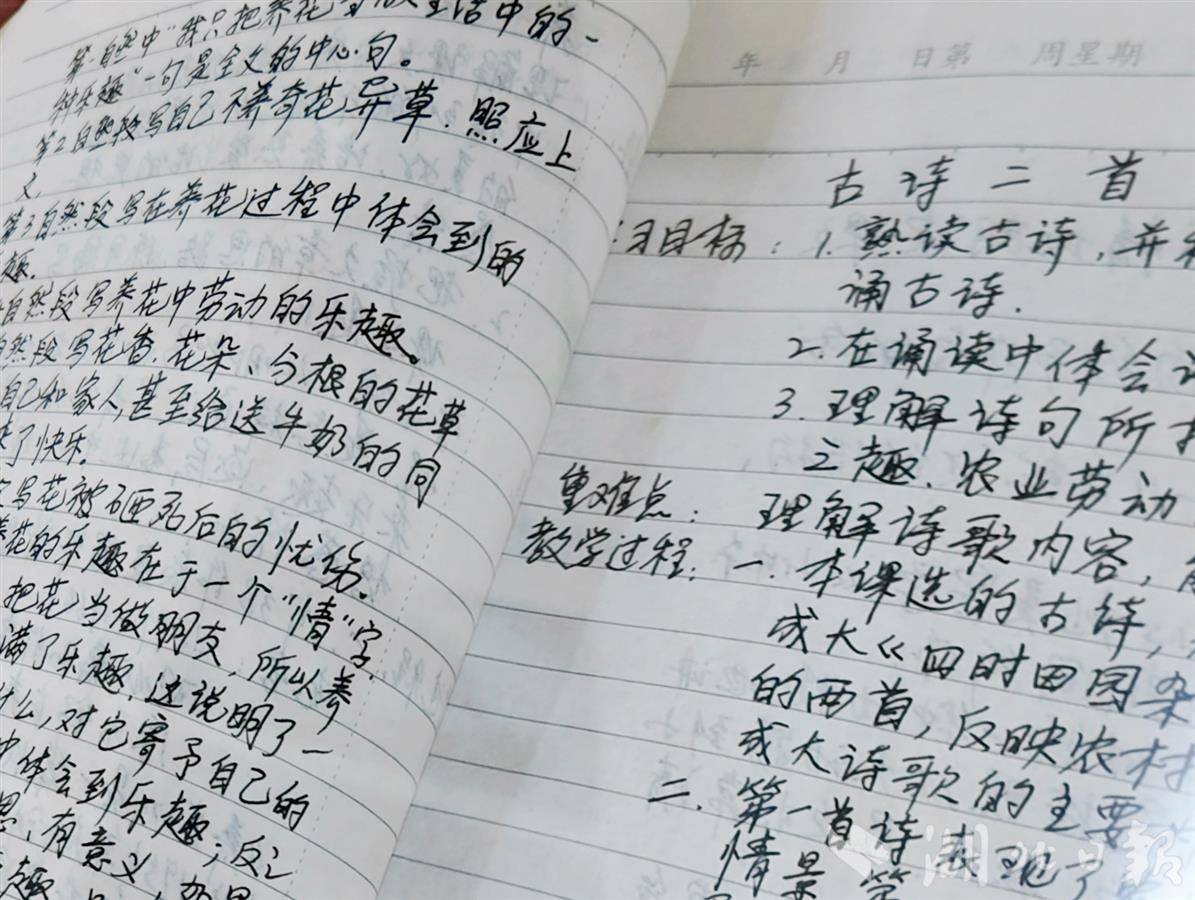 第1自然中"我只把养花当做生活中的一
种乐趣"一句是全文的中心句。
第2自然段写自己不养奇花异草.照应上
文.
第3自然段写在养花过程中体会到的
趣.
自然段写养花中劳动的乐趣。
然段写花香.花朵、分根的花草
自己和家人,甚至给送牛奶的同
来了快乐.
写花被砸死后的忧伤。
养花的乐趣在于一个"情"字.
把花当做朋友,所以养
满了乐趣.这说明了一
什么,对它寄予自己的
中体会到乐趣;反之
思,有意义
趣
年 月 日第 周星期
古诗二首
习目标:1.熟读古诗,并
诵古诗.
2.在诵读中体会
3.理解诗句所
之趣.农业劳动
重难点: 理解诗歌内容,
教学过程:一.本课选的古诗,
成大《四时田园杂
的两首,反映农村
成大诗歌的主要
二.第一首诗表现了
情景.第
湖北日报